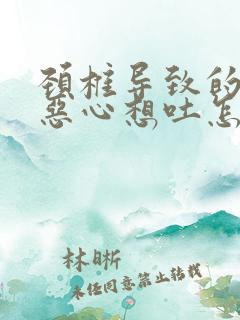 颈椎导致的
恶心想吐怎
林晰
未经同意禁止转载